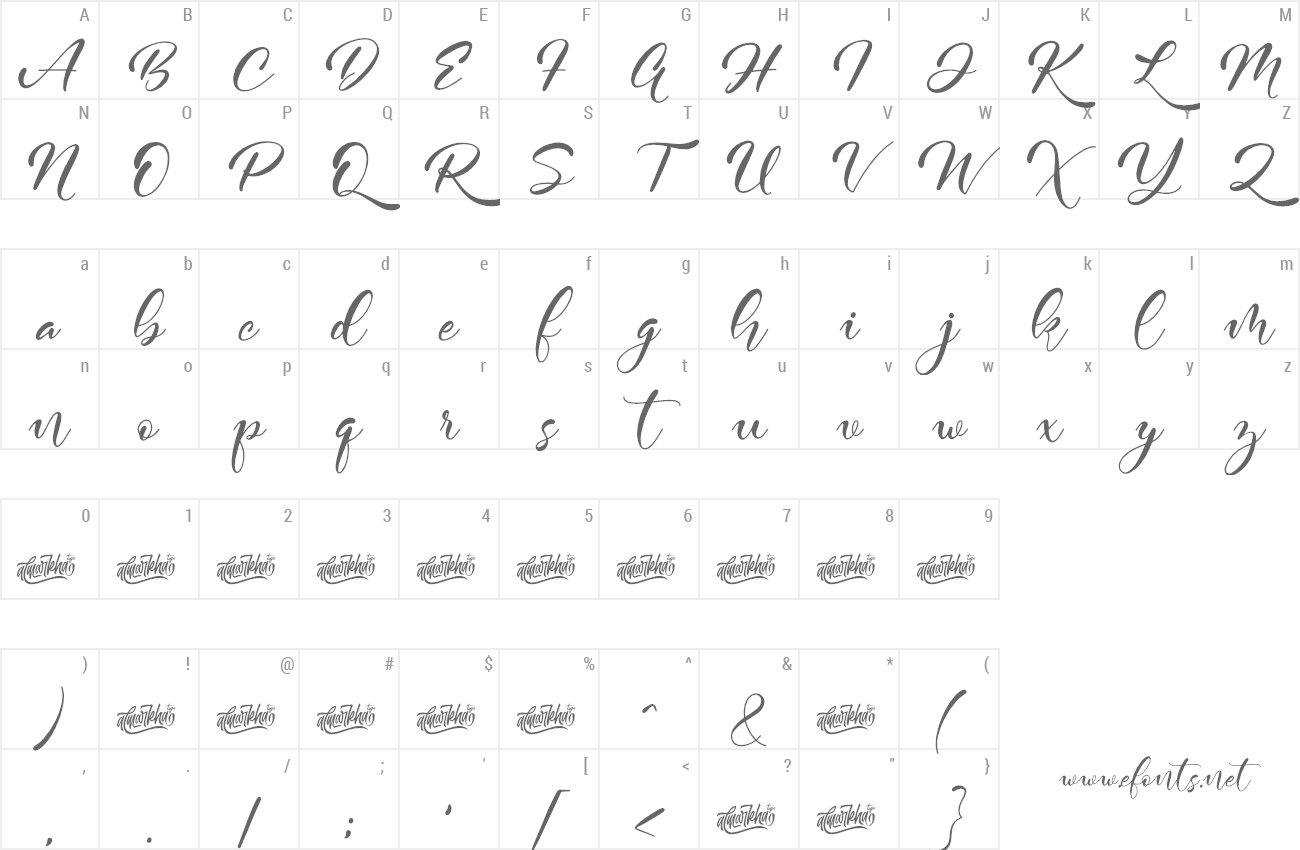 A B C D E F G H I J K L M
A B C D E F G H I J K L M
N O P Q R S T U V W X Y Z
N O P Q R S T U V W X Y Z
a b c d e f g h i j k l m
a b c d e f g h i j k l m
n o p q r s t u v w x y z
n o p q r s t u v w x y z
0 1 2 3 4 5 6 7 8 9
almarkha type almarkha type almarkha type almarkha type almarkha type almarkha type almarkha type almarkha type almarkha type almarkha type
) ! @ # $ % ^ & * (
) almarkha type almarkha type almarkha type almarkha type almarkha type ^ & almarkha type (
, . / ; ' [ < ? " }
, . / ; ' [ < almarkha type almarkha type }
www.efonts.net